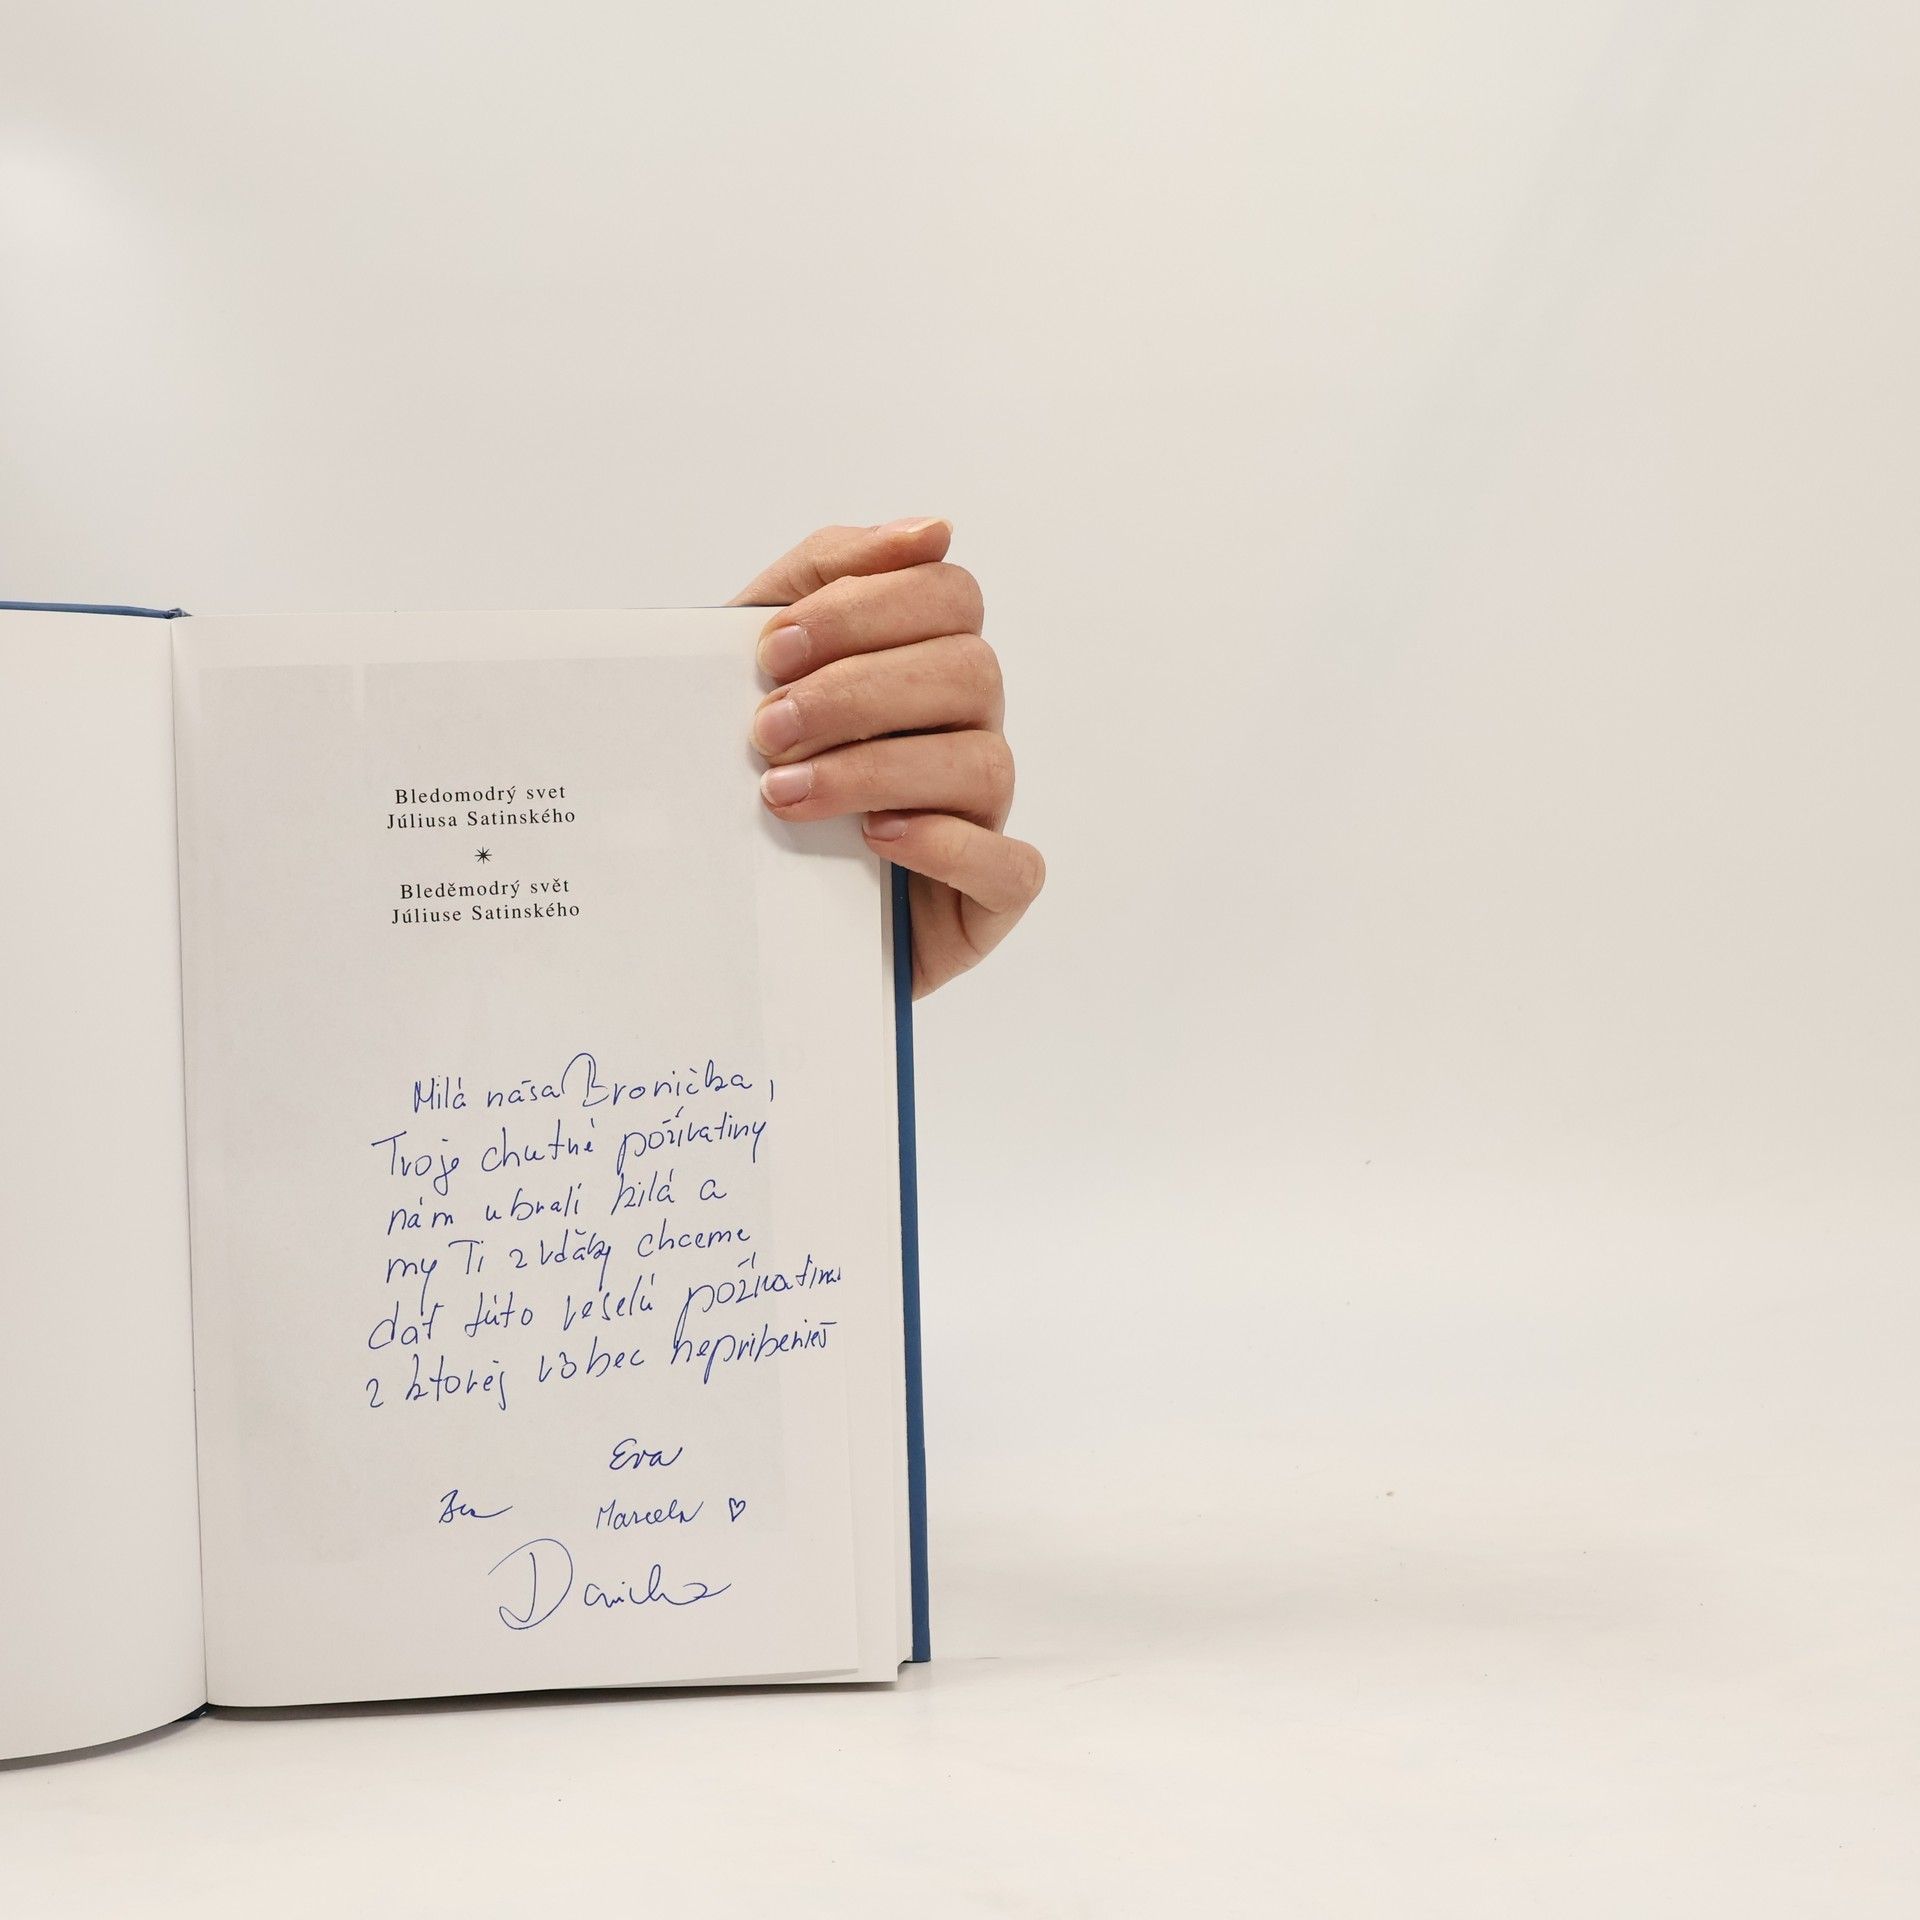 Bledomodrý svet
Júliusa Satinského
Bleděmodrý svět
Júliuse Satinského
Milá náša Bronička,
Tvoje chutné požívatiny
nám ubrali kilá a
my Ti z vďaky chceme
dať túto veselú požívatinu
z ktorej vôbec nepriberieš
Eva
Marcela
Danicka